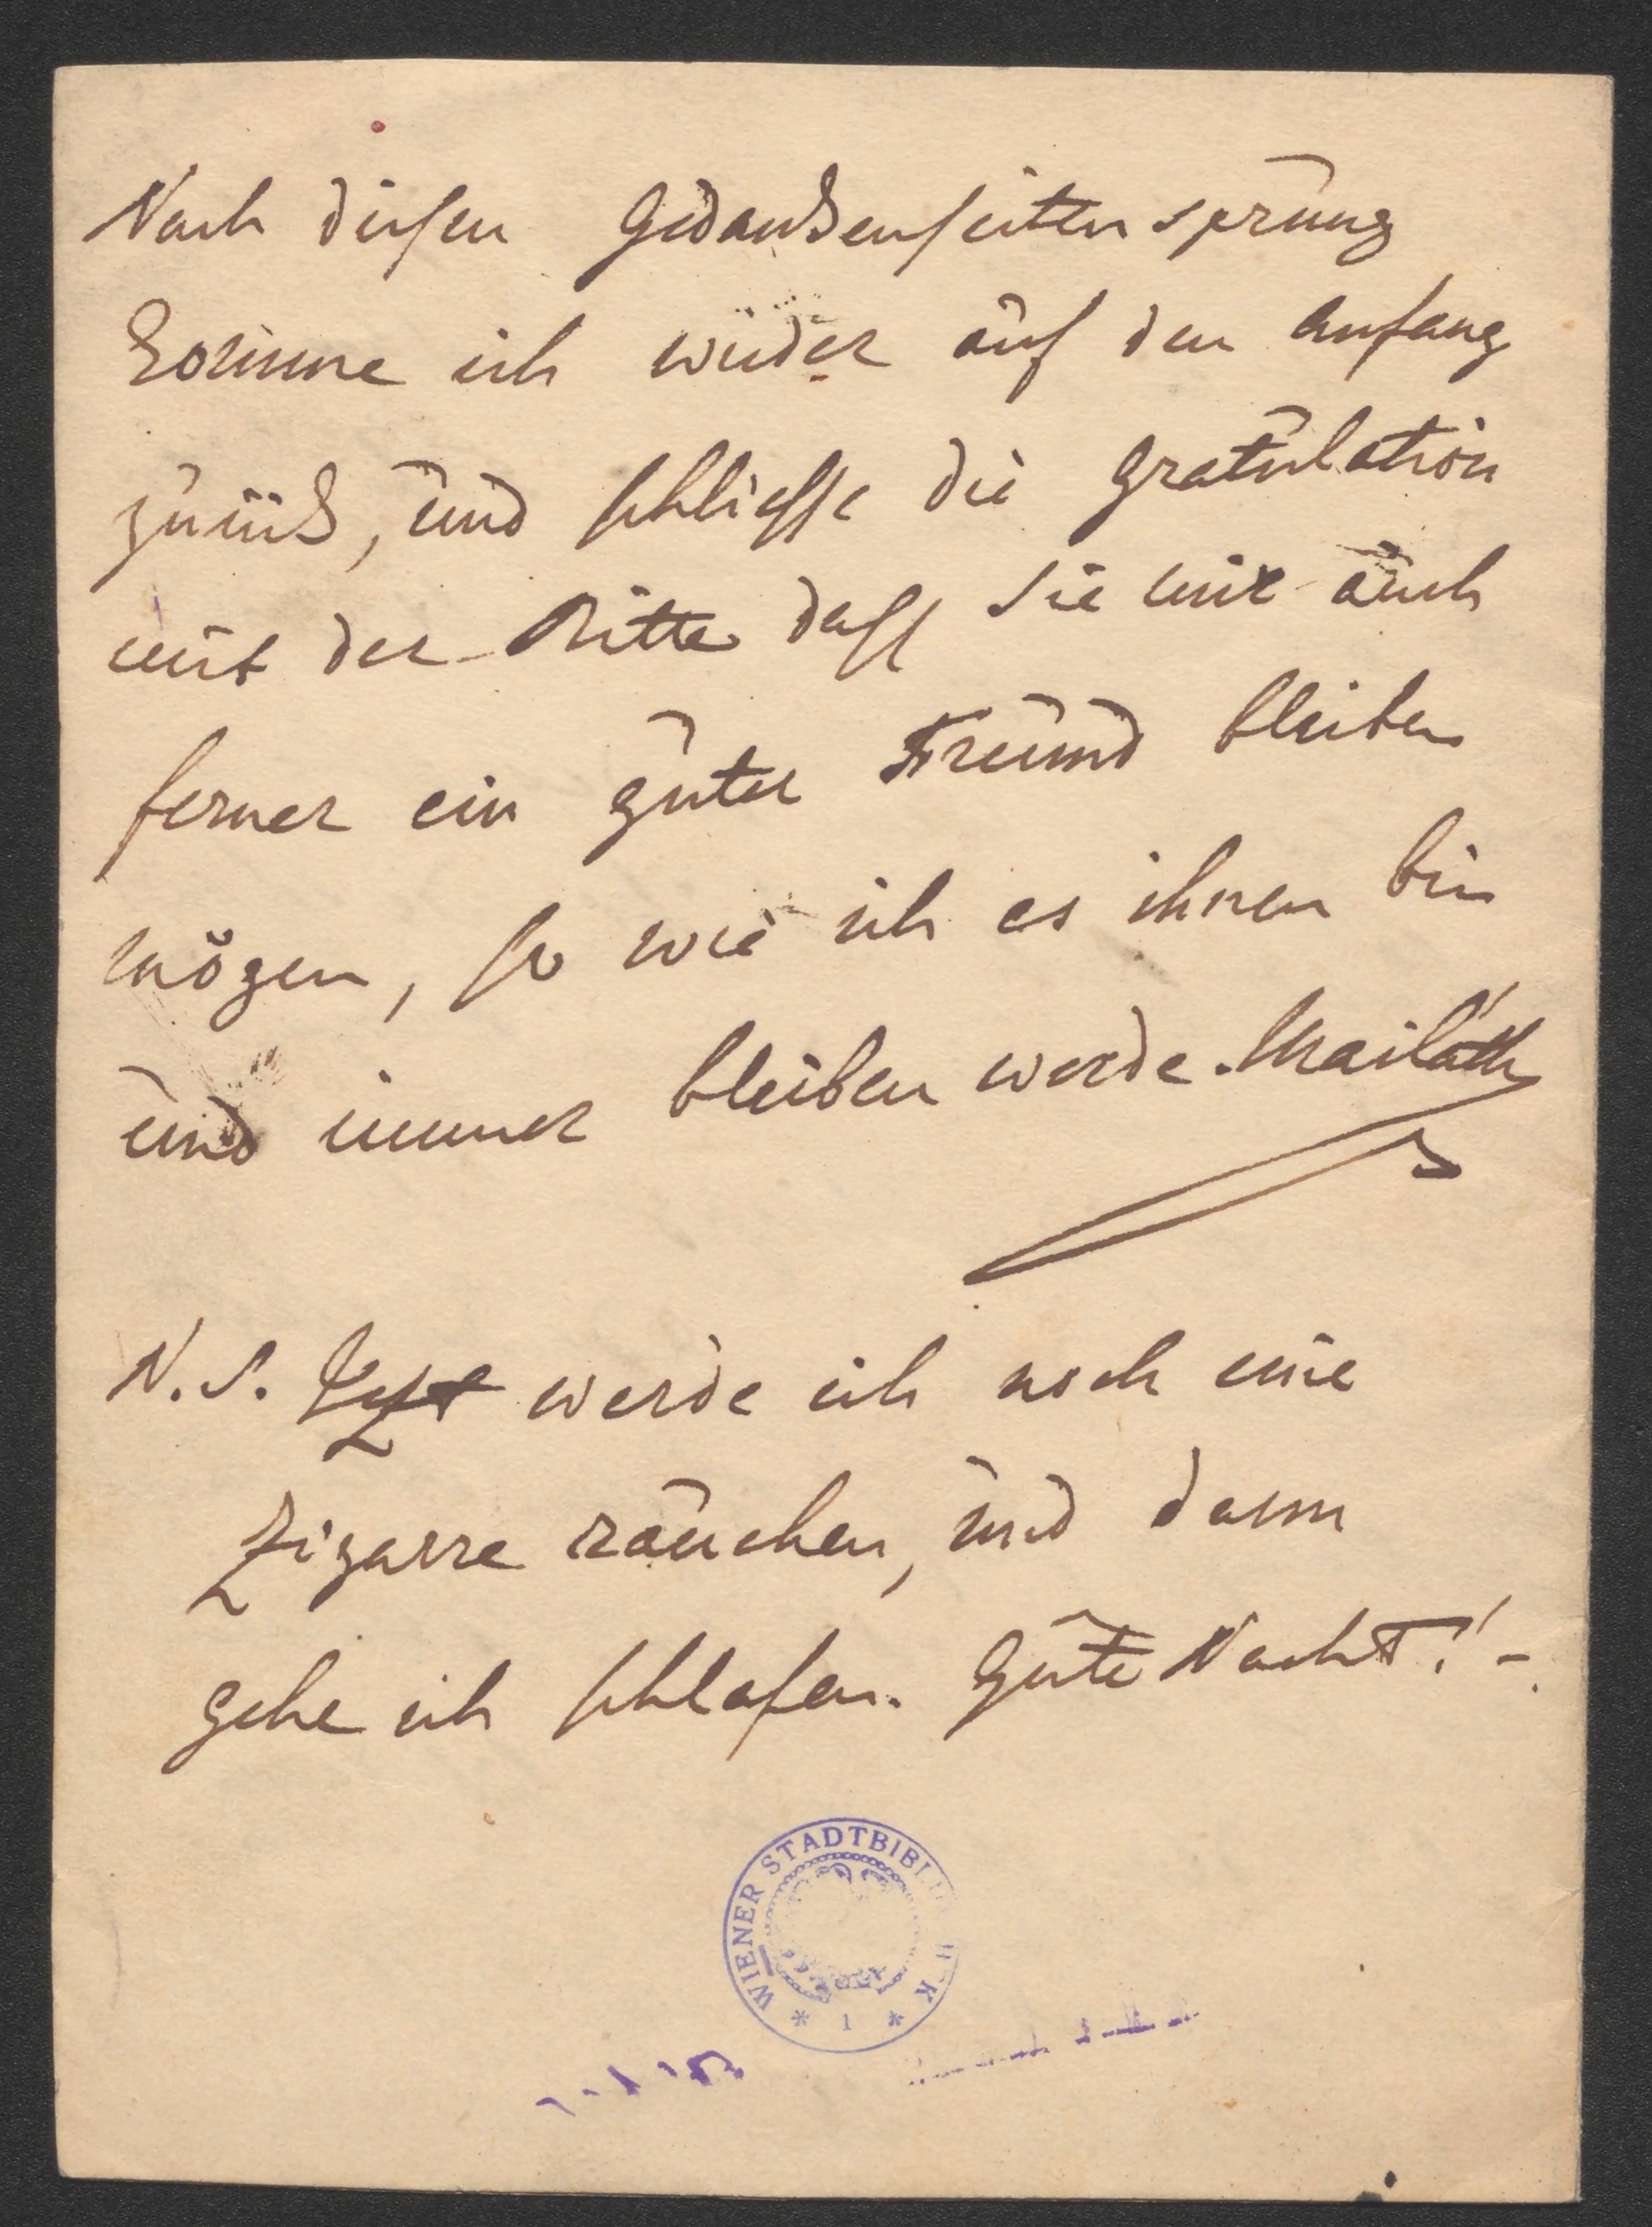 Nach diesen Gedankenseitensprung
komme ich wieder auf den Anfang
zurück, und schliesse die Gratulation
mit der Bitte dass Sie mir auch
ferner ein guter Freund bleiben
mögen, so wie ich es ihnen bin
und immer bleiben werde. Mailáth
N.S. Jetzt werde ich noch eine
Zigarre rauchen, und dann
gehe ich schlafen. Gute Nacht! -
WIENER STADTBIBLIOTHEK
* 1 *